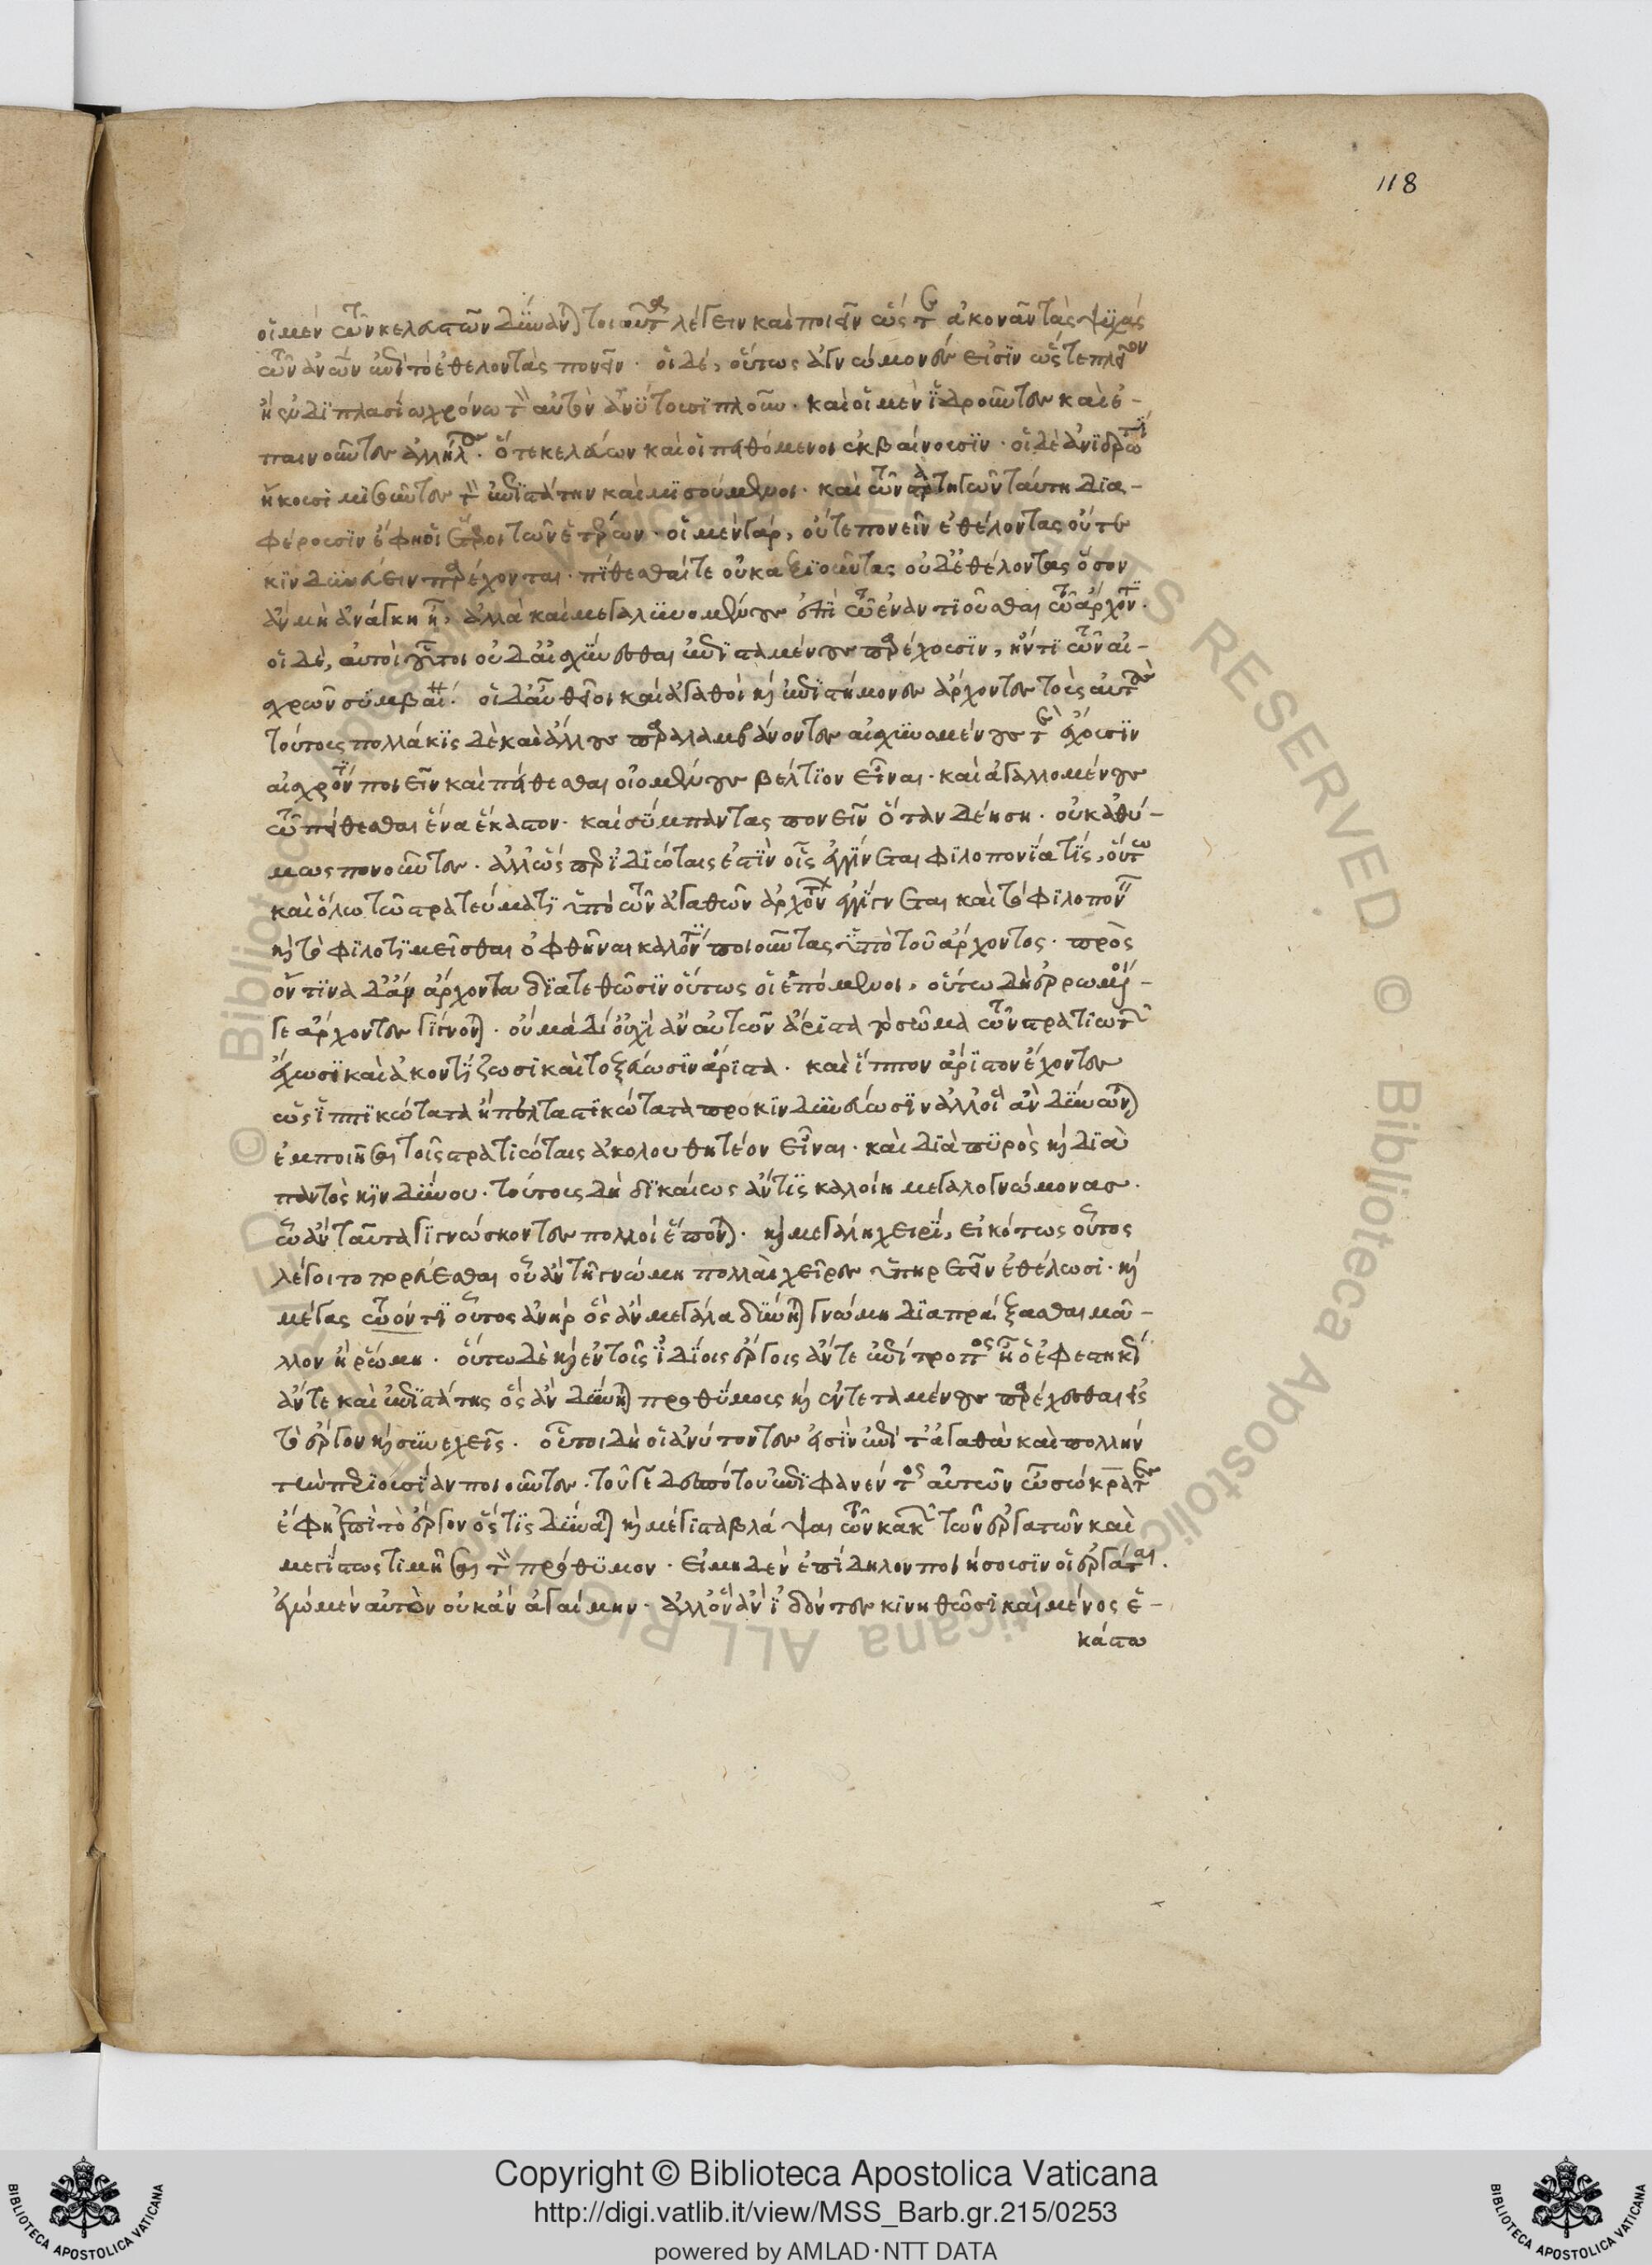 118
οἱ μὲν τῶν κελευστῶν δύνανται τοιαῦτα λέγειν καὶ ποιεῖν ὥστε ἀκονᾶν τὰς ψυχὰς
τῶν ἀνθρώπων ἐπὶ τὸ ἐθελοντὰς πονεῖν· οἱ δὲ, οὕτως ἀγνώμονές εἰσϊν ὥστε πλεῖον
ἢ ἐν δϊπλασίω χρόνω τὸν αὐτὸν ἀνύτουσϊ πλοῦν· καὶ οἱ μὲν ἱδροῦντες καὶ ἐ-
παινοῦντες ἀλλήλους· ὅ τε κελεύων καὶ οἱ πειθόμενοι ἐκβαίνουσϊν· οἱ δὲ ἀνϊδρωτὶ
ἥκουσι μισοῦντες τὸν ἐπϊστάτην καὶ μισούμενοι· καὶ τῶν στρατηγῶν ταύτη δϊα-
φέρουσϊν ἔφη οἱ ἕτεροι τῶν ἑτέρων· οἱ μὲν γὰρ, οὔτε πονεῖν ἐθέλοντας οὔτε
κϊνδϋνεύειν παρέχονται· πείθεσθαί τε οὐκ ἀξϊοῦντας οὐδ' ἐθέλοντας ὅσον
ἂν μὴ ἀνάγκη ἦ, ἀλλὰ καὶ μεγαλϋνομένους ἐπὶ τῶ ἐναντϊοῦσθαι τῶ ἄρχοντϊ·
οἱ δὲ, αὐτοὶ οὗτοι οὐδ' αἰσχύνεσθαι ἐπϊσταμένους παρέχουσϊν, ἤν τϊ τῶν αἰ-
σχρῶν σϋμβαίνη· οἱ δ' αὖ θεῖοι καὶ ἀγαθοὶ καὶ ἐπϊστήμονες ἄρχοντες τοὺς αὐτοὺς
τούτους πολλάκϊς δὲ καὶ ἄλλους παραλαμβάνοντες αἰσχϋνομένους τε ἔχουσϊν
αἰσχρόν τϊ ποιεῖν καὶ πείθεσθαι οἰομένους βέλτϊον εἶναι· καὶ ἀγαλλομένους
τῶ πείθεσθαι ἕνα ἕκαστον· καὶ σύμπαντας πονεῖν ὅταν δεήση· οὐκ ἀθύ-
μως πονοῦντες· ἀλλ' ὥσπερ ἰδϊώταις ἔστϊν οἷς ἐγγίνεται φϊλοπονία τϊς, οὕτω
καὶ ὅλω τῶ στρατεύματϊ ὑπὸ τῶν ἀγαθῶν ἀρχόντων ἐγγίγνεται καὶ τὸ φϊλοπονεῖν
καὶ τὸ φϊλοτϊμεῖσθαι ὀφθῆναι καλόν τϊ ποιοῦντας ὑπὸ τοῦ ἄρχοντος· πρὸς
ὅντϊνα δ' ἂν ἄρχοντα δϊατεθῶσϊν οὕτως οἱ ἑπόμενοι, οὕτω δὴ ἐρρωμένοι
γε ἄρχοντες γίγνονται· οὐ μὰ δί' οὐχὶ ἂν αὐτῶν ἄριστα τὸ σῶμα τῶν στρατϊωτῶν
ἔχωσϊ καὶ ἀκοντίζωσι καὶ τοξεύωσϊν ἄρϊστα· καὶ ἵππον ἄρϊστον ἔχοντες
ὡς ἱππϊκώτατα ἢ πελταστϊκώτατα προκϊνδϋνεύωσϊν ἀλλ' οἳ ἂν δύνωνται
ἐμποιῆσαι τοῖς στρατϊώταις ἀκολουθητέον εἶναι· καὶ δϊὰ πϋρὸς καὶ δϊὰ
παντὸς κϊνδύνου· τούτους δὴ δϊκαίως ἄν τϊς καλοίη μεγαλογνώμονας·
ὧ ἂν ταῦτα γϊγνώσκοντες πολλοὶ ἕπονται· καὶ μεγάλη χειρὶ, εἰκότως οὗτος
λέγοιτο πορεύεσθαι οὗ ἂν τῆ γνώμη πολλαὶ χεῖρες ὑπηρετεῖν ἐθέλωσι· καὶ
μέγας τῶ ὄντϊ οὗτος ἀνὴρ ὃς ἂν μεγάλα δύνηται γνώμη δϊαπράξασθαι μᾶ-
λλον ἢ ῥώμη· οὕτω δὲ καὶ ἐν τοῖς ἰδίοις ἔργοις ἄν τε ἐπίτροπος ἦ ὁ ἐφεστηκὼς
ἄν τε καὶ ἐπϊστάτης ὃς ἂν δύνηται προθύμους καὶ ἐντεταμένους παρέχεσθαι εἰς
τὸ ἔργον καὶ σϋνεχεῖς· οὗτοι δὴ οἱ ἀνύτοντες εἰσὶν ἐπὶ τἀγαθὰ καὶ πολλὴν
τὴν περϊουσίαν ποιοῦντες· τοῦ γε δεσπότου ἐπϊφανέντος αὐτῶν ὦ σώκρατες
ἔφη ἐπὶ τὸ ἔργον ὅστϊς δύναται καὶ μέγιστα βλάψαι τῶν κακῶν τῶν ἐργατῶν καὶ
μεγίστως τιμῆσαι τὸν πρόθϋμον· εἰ μηδὲν ἐπίδηλον ποιήσουσϊν οἱ ἐργάται·
ἐγὼ μὲν αὐτὸν οὐκ ἂν ἀγαίμην· ἀλλ' ὃν ἂν ἰδόντες κινηθῶσϊ καὶ μένος ἑ-
κάστω
Copyright © Biblioteca Apostolica Vaticana
http://digi.vatlib.it/view/MSS_Barb.gr.215/0253
powered by AMLAD·NTT DATA